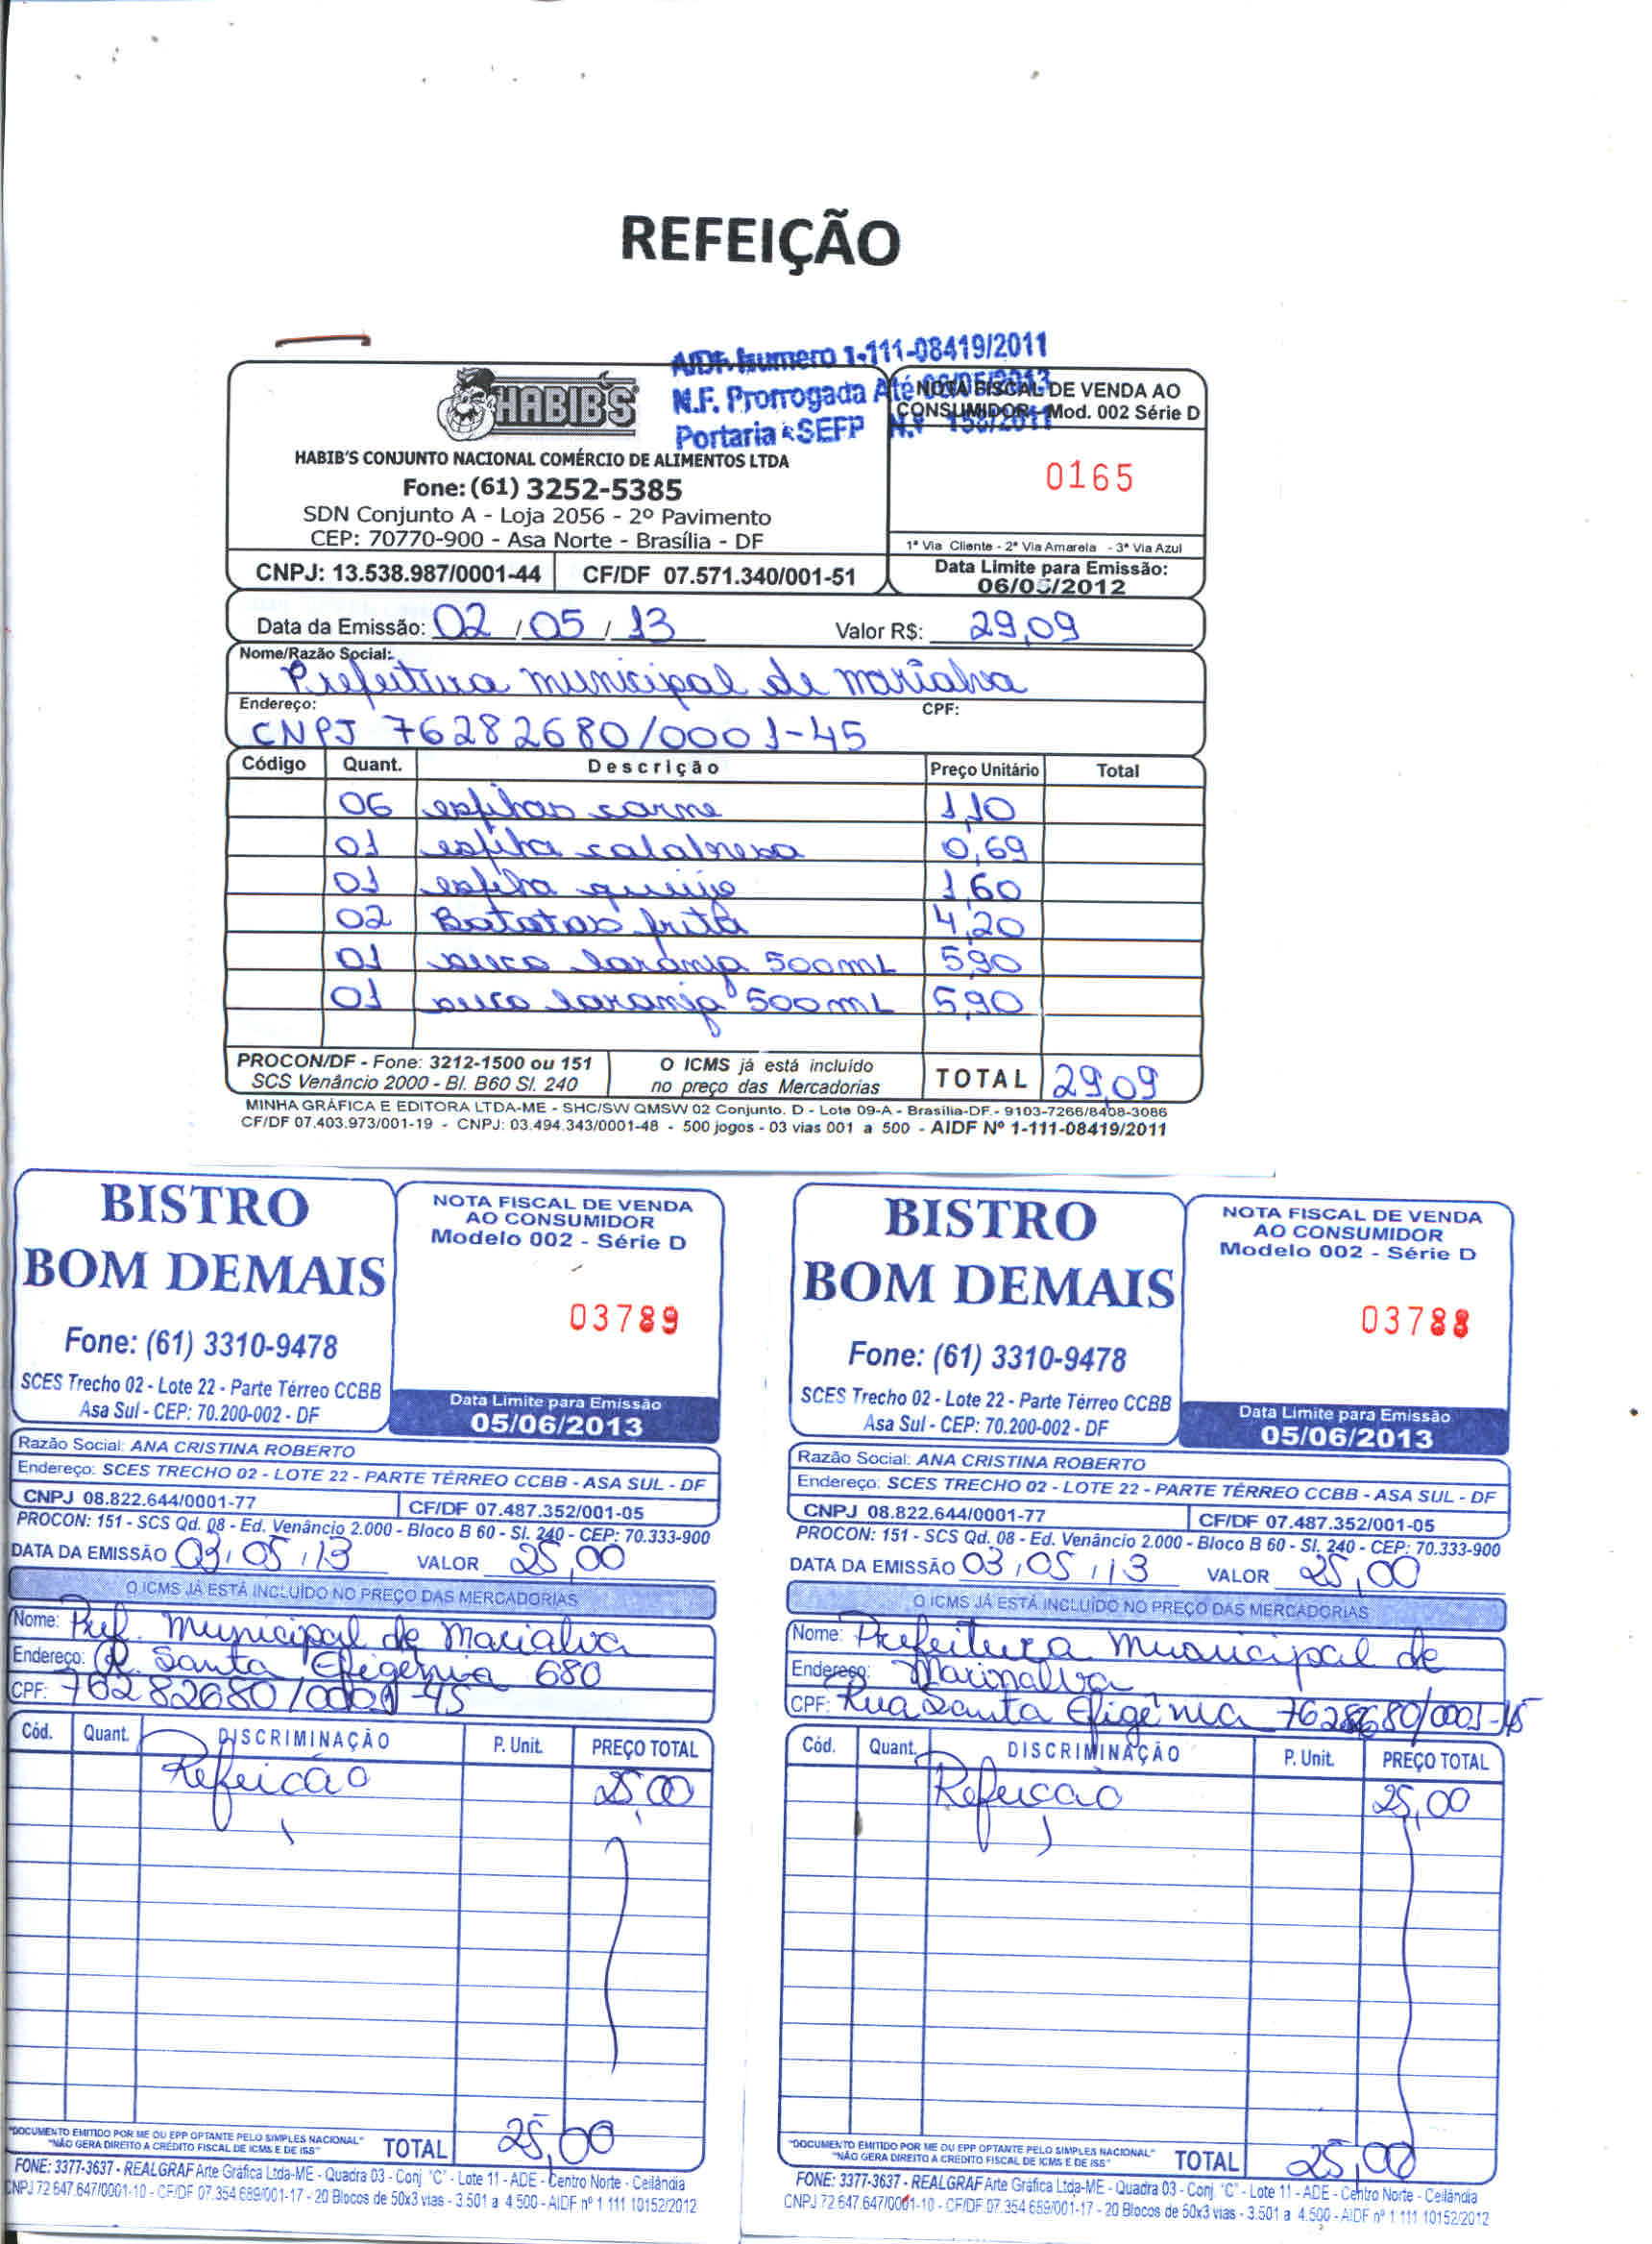 REFEIÇÃO
AIDF Numero 1-111-08419/2011
N.F. Prorrogada Até 06/05/2013
Portaria SEFP N.º 158/2011
HABIB'S
HABIB'S CONJUNTO NACIONAL COMÉRCIO DE ALIMENTOS LTDA
Fone: (61) 3252-5385
SDN Conjunto A - Loja 2056 - 2º Pavimento
CEP: 70770-900 - Asa Norte - Brasília - DF
CNPJ: 13.538.987/0001-44 CF/DF 07.571.340/001-51
NOTA FISCAL DE VENDA AO
CONSUMIDOR Mod. 002 Série D
0165
1ª Via Cliente - 2ª Via Amarela - 3ª Via Azul
Data Limite para Emissão:
06/05/2012
Data da Emissão: 02/05/13 Valor R$: 29,09
Nome/Razão Social: Prefeitura municipal de marialva
Endereço: CPF:
CNPJ 76282680/0001-45
Código Quant. Descrição Preço Unitário Total
06 esfihas carne 1,10
01 esfiha calabresa 0,69
01 esfiha queijo 1,60
02 Batatas frita 4,20
01 suco laranja 500mL 5,90
01 suco laranja 500mL 5,90
PROCON/DF - Fone: 3212-1500 ou 151
SCS Venâncio 2000 - Bl. B60 Sl. 240
O ICMS já está incluído
no preço das Mercadorias
TOTAL 29,09
MINHA GRÁFICA E EDITORA LTDA-ME - SHC/SW QMSW 02 Conjunto. D - Lote 09-A - Brasília-DF - 9103-7266/8408-3086
CF/DF 07.403.973/001-19 - CNPJ: 03.494.343/0001-48 - 500 jogos - 03 vias 001 a 500 - AIDF Nº 1-111-08419/2011
BISTRO
BOM DEMAIS
Fone: (61) 3310-9478
SCES Trecho 02 - Lote 22 - Parte Térreo CCBB
Asa Sul - CEP: 70.200-002 - DF
NOTA FISCAL DE VENDA
AO CONSUMIDOR
Modelo 002 - Série D
03789
Data Limite para Emissão
05/06/2013
Razão Social: ANA CRISTINA ROBERTO
Endereço: SCES TRECHO 02 - LOTE 22 - PARTE TÉRREO CCBB - ASA SUL - DF
CNPJ 08.822.644/0001-77 CF/DF 07.487.352/001-05
PROCON: 151 - SCS Qd. 08 - Ed. Venâncio 2.000 - Bloco B 60 - Sl. 240 - CEP: 70.333-900
DATA DA EMISSÃO 03/05/13 VALOR 25,00
O ICMS JÁ ESTÁ INCLUÍDO NO PREÇO DAS MERCADORIAS
Nome: Pref. Municipal de Marialva
Endereço: R. Santa Efigênia 680
CPF: 76282680/0001-45
Cód. Quant. DISCRIMINAÇÃO P. Unit. PREÇO TOTAL
Refeição 25,00
"DOCUMENTO EMITIDO POR ME OU EPP OPTANTE PELO SIMPLES NACIONAL"
"NÃO GERA DIREITO A CRÉDITO FISCAL DE ICMS E DE ISS"
TOTAL 25,00
FONE: 3377-3637 - REALGRAF Arte Gráfica Ltda-ME - Quadra 03 - Conj. "C" - Lote 11 - ADE - Centro Norte - Ceilândia
CNPJ 72.647.647/0001-10 - CF/DF 07.354.659/001-17 - 20 Blocos de 50x3 vias - 3.501 a 4.500 - AIDF nº 1 111 10152/2012
BISTRO
BOM DEMAIS
Fone: (61) 3310-9478
SCES Trecho 02 - Lote 22 - Parte Térreo CCBB
Asa Sul - CEP: 70.200-002 - DF
NOTA FISCAL DE VENDA
AO CONSUMIDOR
Modelo 002 - Série D
03788
Data Limite para Emissão
05/06/2013
Razão Social: ANA CRISTINA ROBERTO
Endereço: SCES TRECHO 02 - LOTE 22 - PARTE TÉRREO CCBB - ASA SUL - DF
CNPJ 08.822.644/0001-77 CF/DF 07.487.352/001-05
PROCON: 151 - SCS Qd. 08 - Ed. Venâncio 2.000 - Bloco B 60 - Sl. 240 - CEP: 70.333-900
DATA DA EMISSÃO 03/05/13 VALOR 25,00
O ICMS JÁ ESTÁ INCLUÍDO NO PREÇO DAS MERCADORIAS
Nome: Prefeitura Municipal de
Endereço: Marinalva
CPF: Rua Santa Efigênia
Cód. Quant. DISCRIMINAÇÃO P. Unit. PREÇO TOTAL
Refeição 25,00
"DOCUMENTO EMITIDO POR ME OU EPP OPTANTE PELO SIMPLES NACIONAL"
"NÃO GERA DIREITO A CRÉDITO FISCAL DE ICMS E DE ISS"
TOTAL 25,00
FONE: 3377-3637 - REALGRAF Arte Gráfica Ltda-ME - Quadra 03 - Conj. "C" - Lote 11 - ADE - Centro Norte - Ceilândia
CNPJ 72.647.647/0001-10 - CF/DF 07.354.659/001-17 - 20 Blocos de 50x3 vias - 3.501 a 4.500 - AIDF nº 1 111 10152/2012